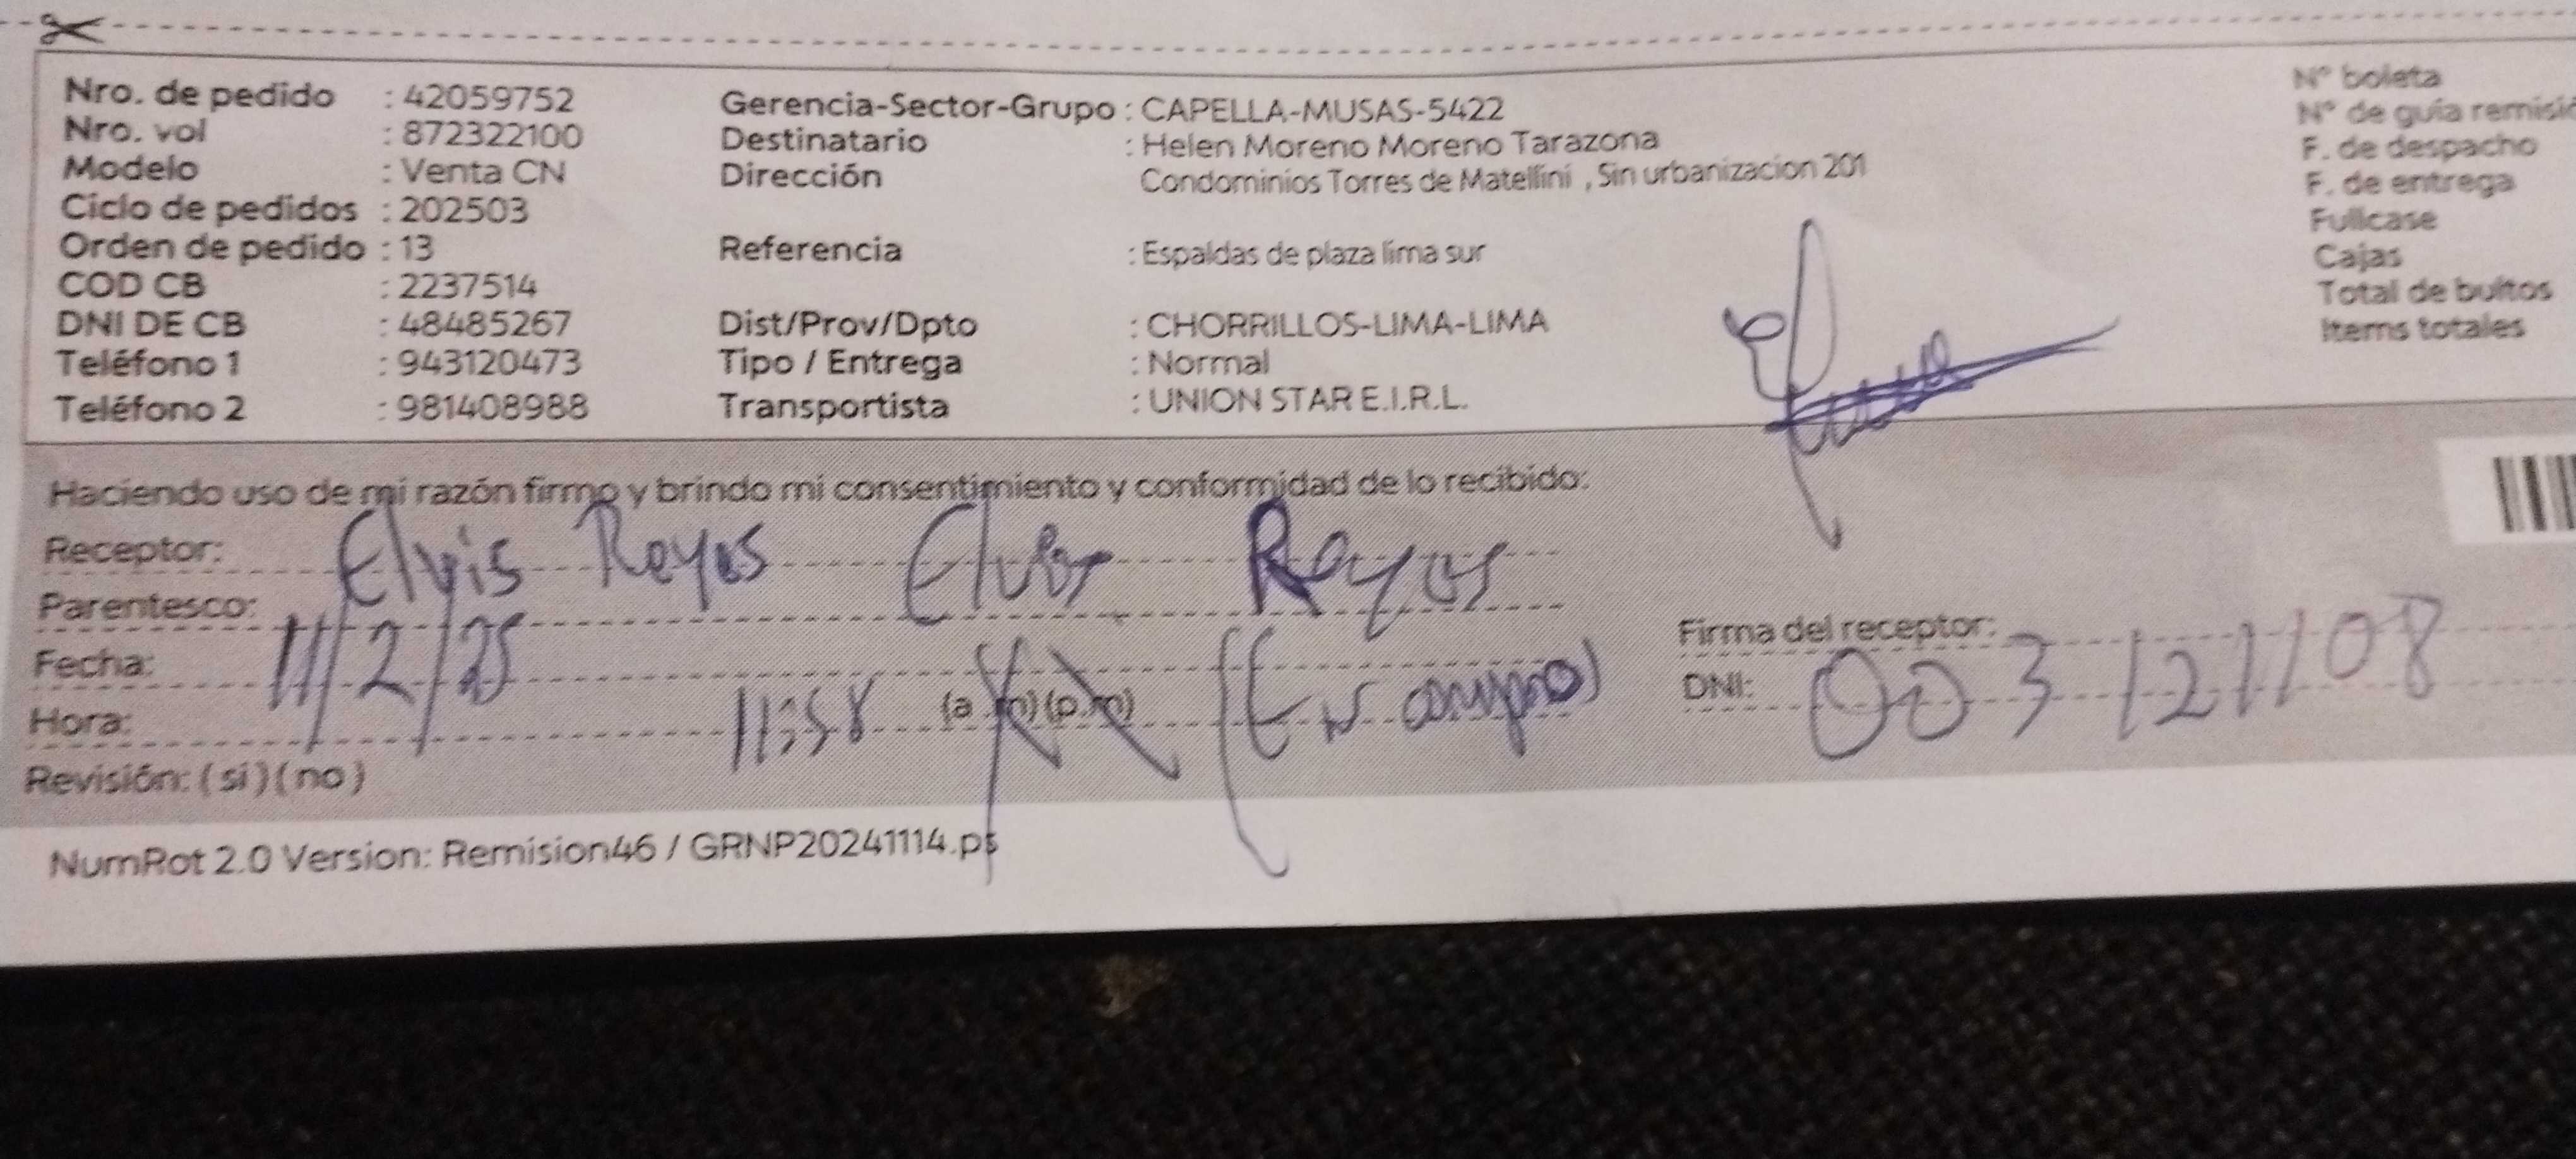 Nro. de pedido : 42059752
Nro. vol : 872322100
Modelo : Venta CN
Ciclo de pedidos : 202503
Orden de pedido : 13
COD CB : 2237514
DNI DE CB : 48485267
Teléfono 1 : 943120473
Teléfono 2 : 981408988
Gerencia-Sector-Grupo : CAPELLA-MUSAS-5422
Destinatario : Helen Moreno Moreno Tarazona
Dirección Condominios Torres de Matellini , Sin urbanizacion 201
Referencia : Espaldas de plaza lima sur
Dist/Prov/Dpto : CHORRILLOS-LIMA-LIMA
Tipo / Entrega : Normal
Transportista : UNION STAR E.I.R.L.
N° boleta
N° de guía remisió
F. de despacho
F. de entrega
Fullcase
Cajas
Total de bultos
Items totales
Haciendo uso de mi razón firmo y brindo mi consentimiento y conformidad de lo recibido:
Receptor: Elvis Reyes Elvis Reyes
Parentesco:
Fecha: 11/2/25
Hora: 11:58 (a.m)(p.m)
Revisión: (si)(no)
Firma del receptor:
DNI: 003121108
NumRot 2.0 Version: Remision46 / GRNP20241114.ps